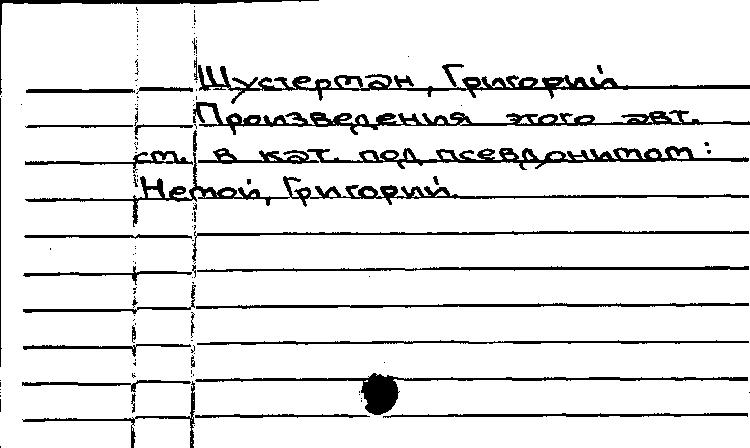 Шустерман, Григорий.
Произведения этого авт.
см. в кат. под псевдонимом:
Немой, Григорий.